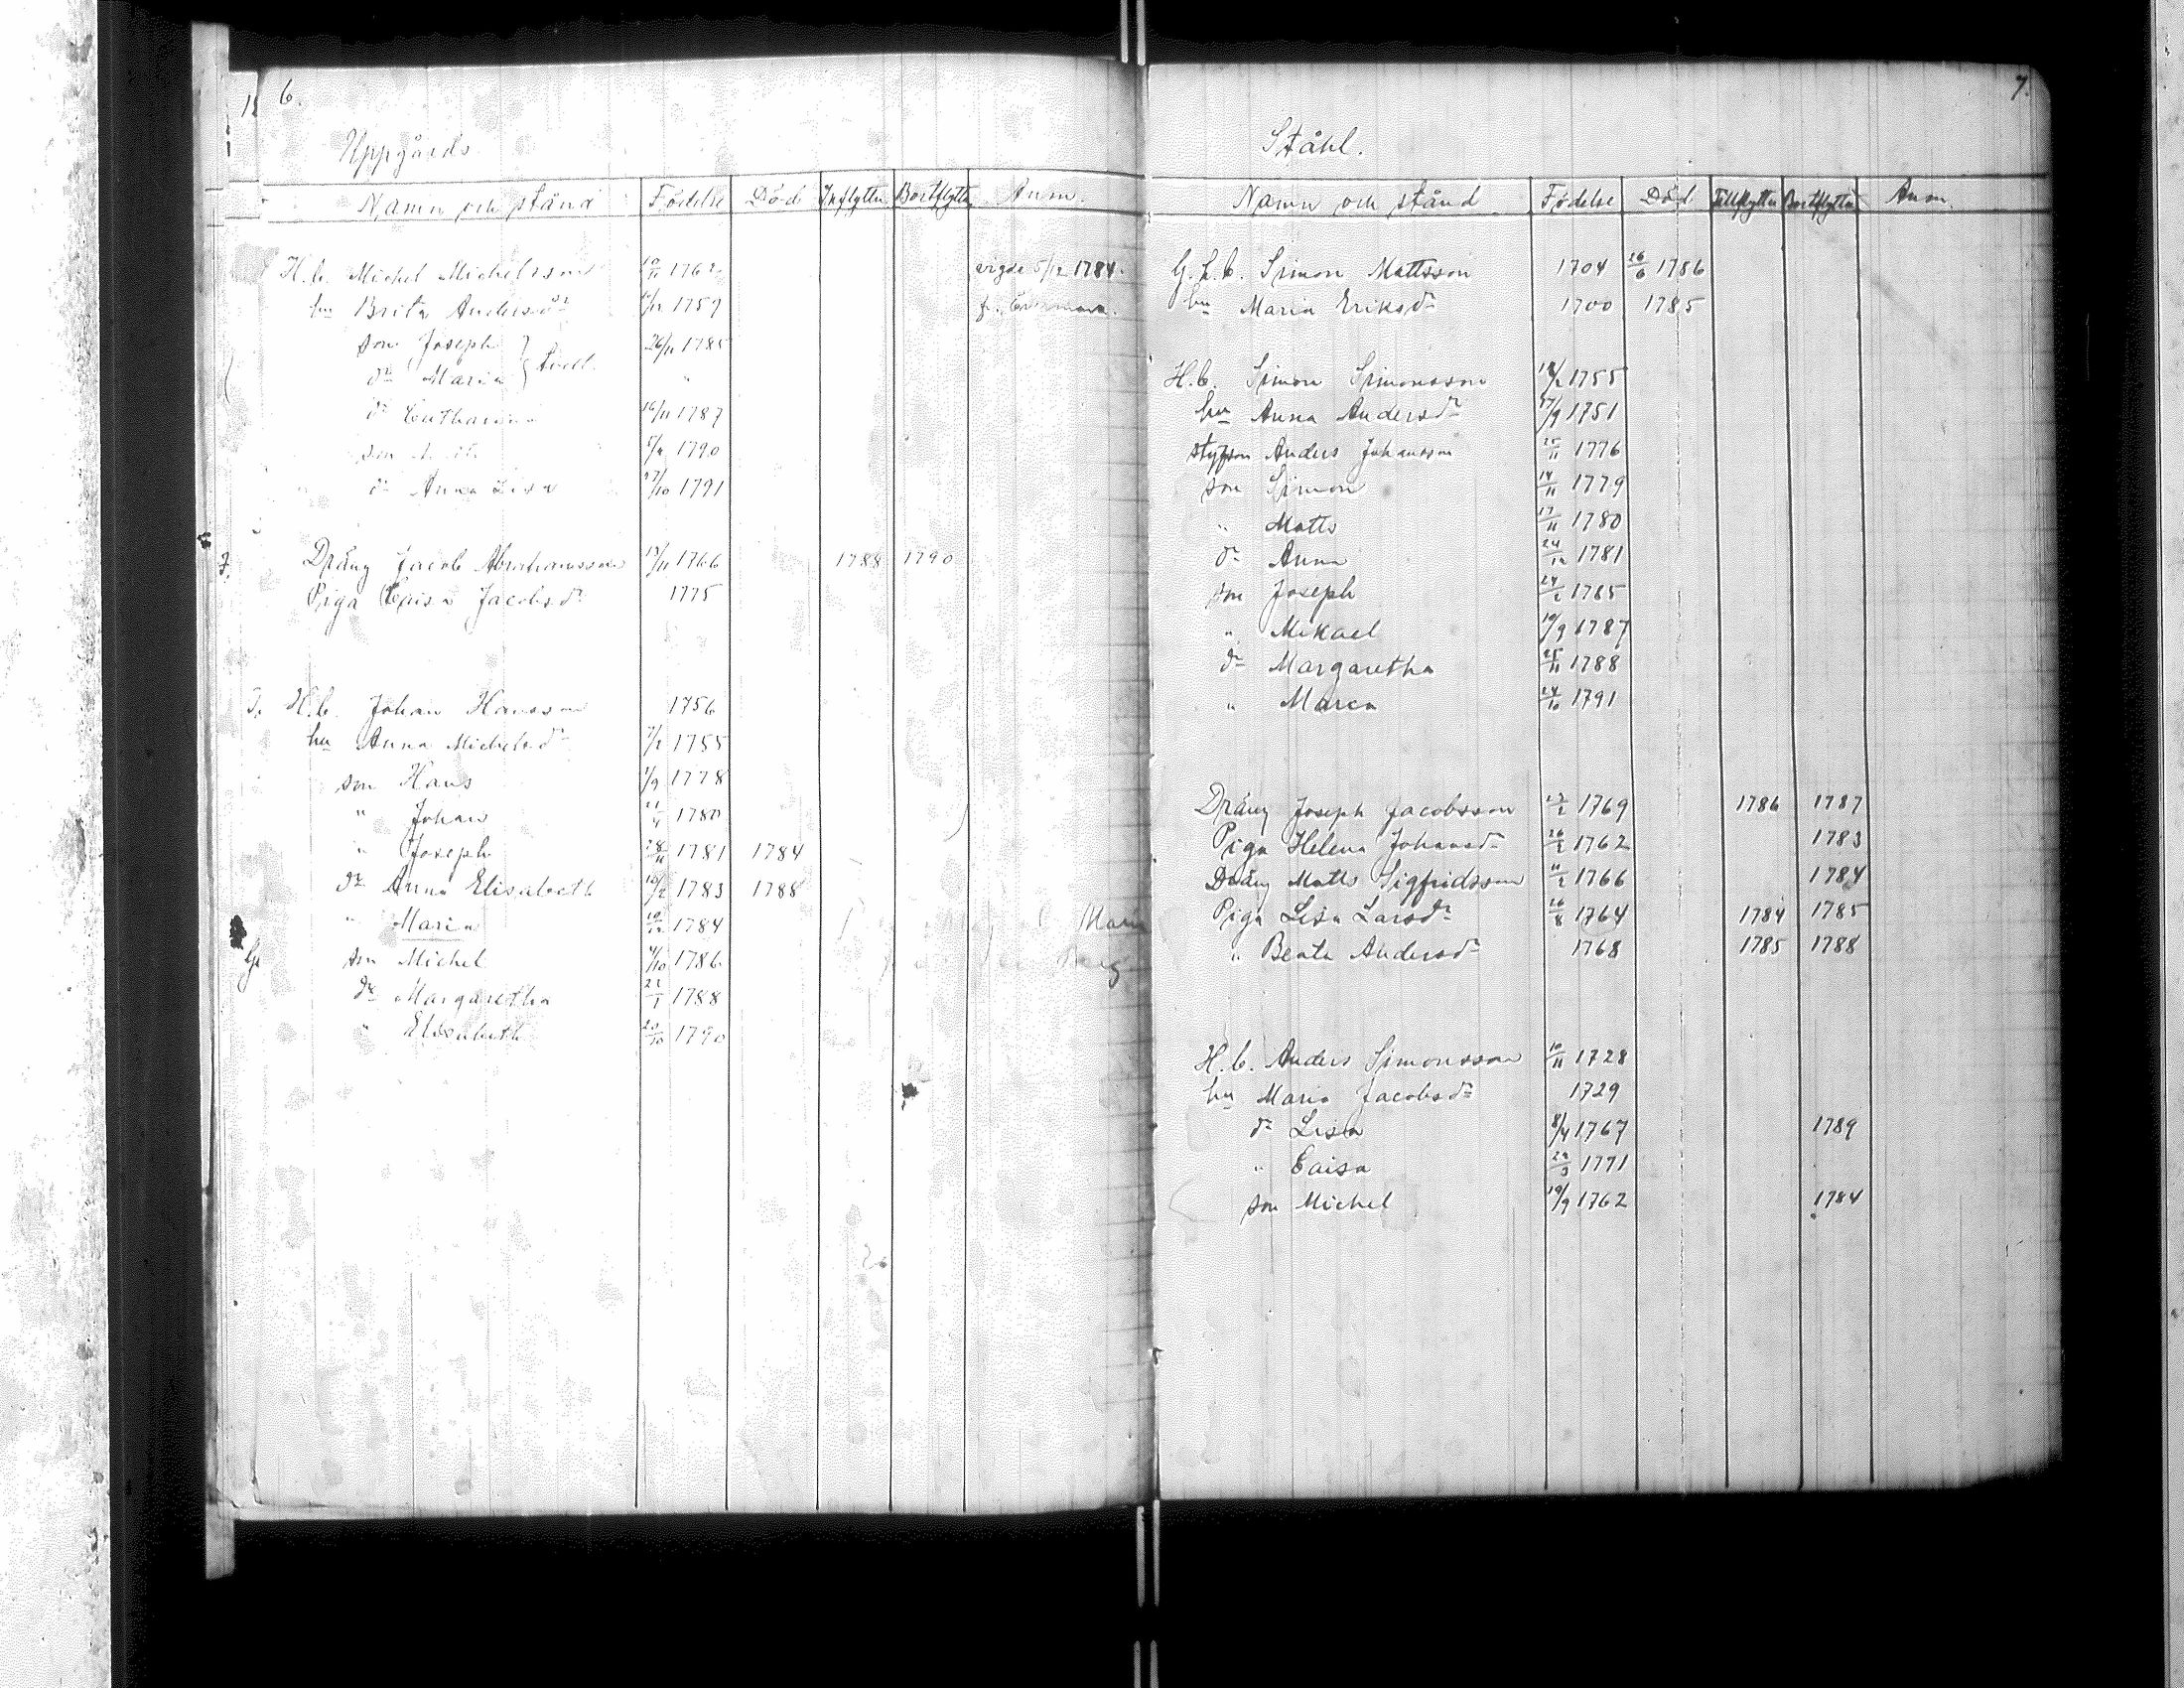 6.
Uppgårds
Namn och stånd Födelse Död Inflyttn Bortflyttn Anm.
H.b. Michel Michelsson 1762 vigde 5/12 1784.
hu Brita Andersdr 1759
son Joseph 26/11 1785
dr Maria "
dr Catharina 16/11 1787
son 1790
dr Anna Lisa 27/10 1791
Dräng Jacob Abrahamsson 13/11 1766 1788 1790
Piga Caisa Jacobsdr 1775
H.b. Johan Hansson 1756
hu Anna Michelsdr 7/2 1755
son Hans 1/9 1778
" Johan 21/4 1780
" Joseph 28/11 1781 1784
dr Anna Elisabeth 16/2 1783 1788
" Maria 1784
son Michel 4/10 1786
dr Margaretha 22/1 1788
" Elisabeth 20/10 1790
7.
Ståhl.
Namn och stånd Födelse Död Tillflyttn Bortflyttn Anm.
G.h.b. Simon Mattsson 1704 26/6 1786
hu Maria Eriksdr 1700 1785
H.b. Simon Simonsson 1755
hu Anna Andersdr 27/9 1751
styfson Anders Johansson 25/11 1776
son Simon 14/11 1779
" Matts 17/11 1780
dr Anna 24/12 1781
son Joseph 24/2 1785
" Mikael 19/9 1787
dr Margaretha 25/11 1788
" Maria 24/10 1791
Dräng Joseph Jacobsson 1769 1786 1787
Piga Helena Johansdr 1762 1783
Dräng Matts Sigfridsson 11/2 1766 1784
Piga Lisa Larsdr 16/8 1764 1784 1785
" Beata Andersdr 1768 1785 1788
H.b. Anders Simonsson 10/11 1728
hu Maria Jacobsdr 1729
dr Lisa 8/4 1767 1789
" Caisa 1771
son Michel 19/9 1762 1784